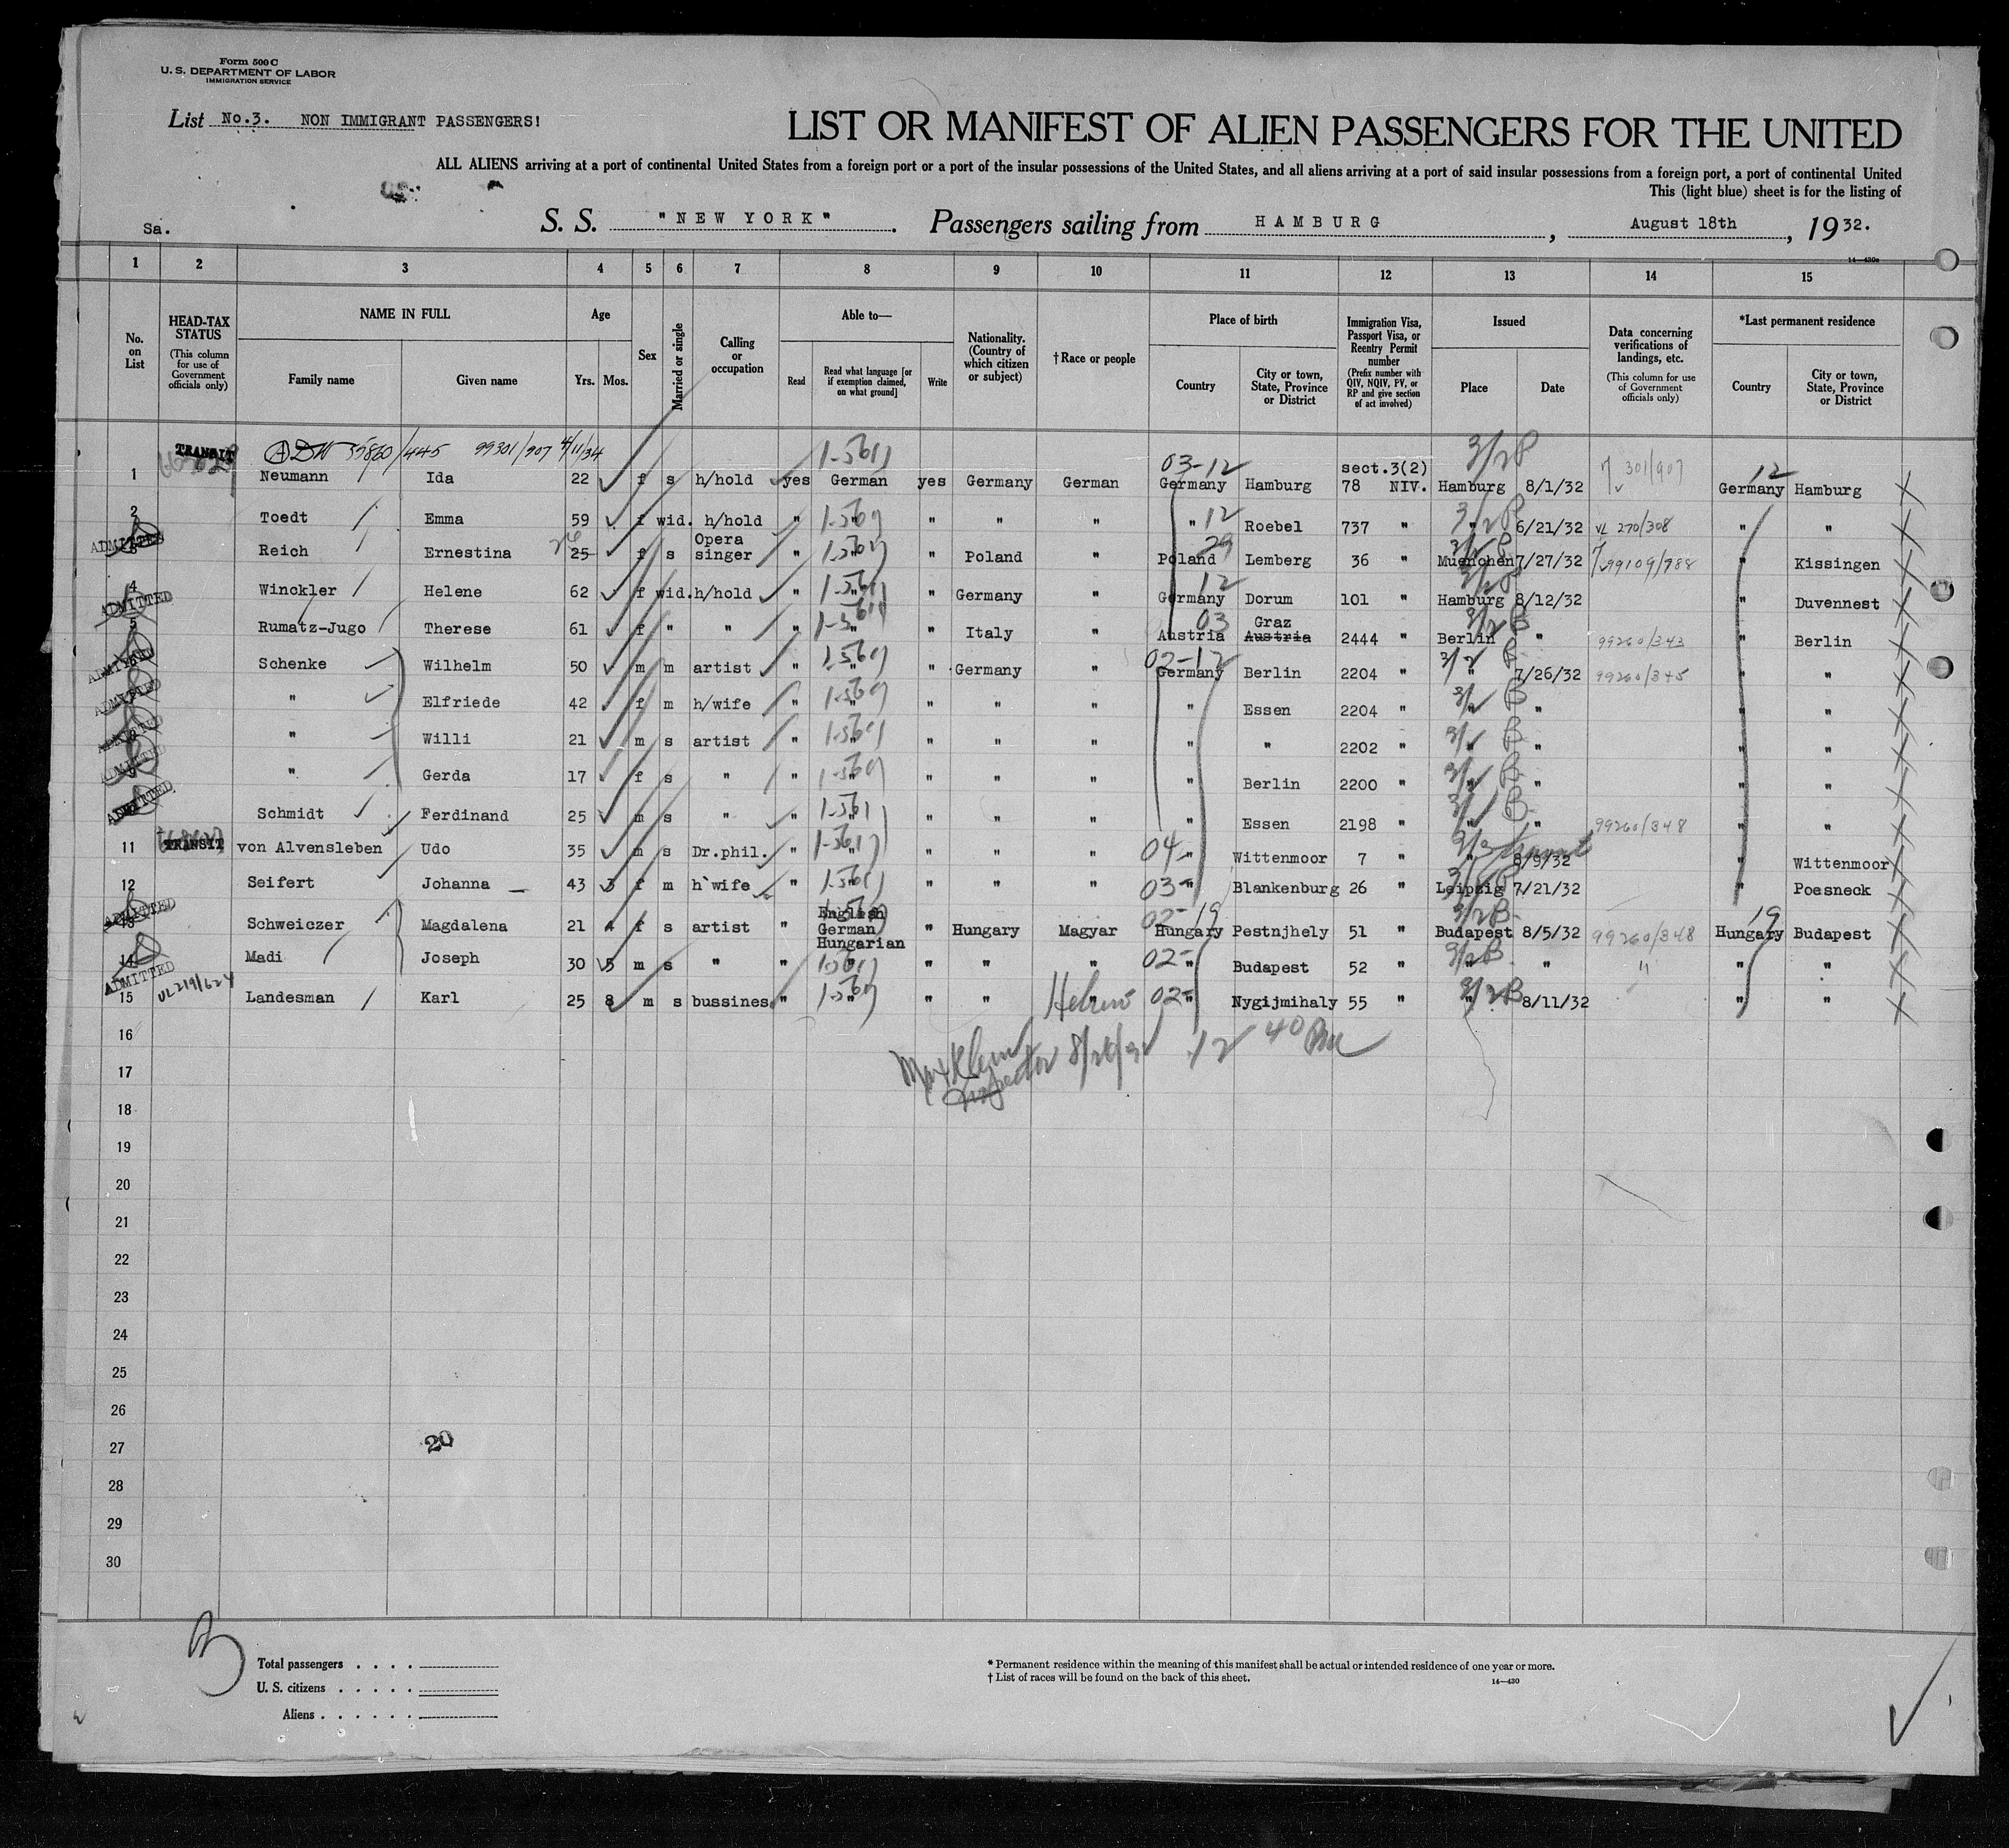 Form 500 C
U. S. DEPARTMENT OF LABOR
IMMIGRATION SERVICE
List No.3. NON IMMIGRANT PASSENGERS!
LIST OR MANIFEST OF ALIEN PASSENGERS FOR THE UNITED
ALL ALIENS arriving at a port of continental United States from a foreign port or a port of the insular possessions of the United States, and all aliens arriving at a port of said insular possessions from a foreign port, a port of continental United
This (light blue) sheet is for the listing of
Sa. S. S. "NEW YORK". Passengers sailing from HAMBURG, August 18th, 1932.
14—430a
1 2 3 4 5 6 7 8 9 10 11 12 13 14 15
No. on List
HEAD-TAX STATUS (This column for use of Government officials only)
NAME IN FULL
Family name
Given name
Age
Yrs. Mos.
Sex
Married or single
Calling or occupation
Able to—
Read
Read what language [or if exemption claimed, on what ground]
Write
Nationality. (Country of which citizen or subject)
† Race or people
Place of birth
Country
City or town, State, Province or District
Immigration Visa, Passport Visa, or Reentry Permit number (Prefix number with QIV, NQIV, PV, or RP and give section of act involved)
Issued
Place
Date
Data concerning verifications of landings, etc. (This column for use of Government officials only)
*Last permanent residence
Country
City or town, State, Province or District
TRANSIT 99301/907 4/11/34
03-12 sect.3(2) 301/907 12
1 Neumann Ida 22 f s h/hold yes German yes Germany German Germany Hamburg 78 NIV. Hamburg 8/1/32 Germany Hamburg
2 Toedt Emma 59 f wid. h/hold " " " " " " 12 Roebel 737 " " 6/21/32 VL 270/308 " "
ADMITTED 3 Reich Ernestina 25 f s Opera singer " " " Poland " Poland 29 Lemberg 36 " Muenchen 7/27/32 99109/788 " Kissingen
ADMITTED 4 Winckler Helene 62 f wid. h/hold " " " Germany " Germany 12 Dorum 101 " Hamburg 8/12/32 " Duvennest
5 Rumatz-Jugo Therese 61 f " " " " " Italy " Austria 03 Graz Austria 2444 " Berlin " 99260/343 " Berlin
ADMITTED Schenke Wilhelm 50 m m artist " " " Germany " 02-12 Germany Berlin 2204 " " 7/26/32 99260/345 " "
ADMITTED " Elfriede 42 f m h/wife " " " " " " Essen 2204 " " " " "
ADMITTED " Willi 21 m s artist " " " " " " " 2202 " " " " "
ADMITTED " Gerda 17 f s " " " " " " " Berlin 2200 " " " " "
ADMITTED Schmidt Ferdinand 25 m s " " " " " " " Essen 2198 " " " 99260/348 " "
11 TRANSIT von Alvensleben Udo 35 m s Dr.phil. " " " " " 04- " Wittenmoor 7 " " 8/9/32 " Wittenmoor
12 Seifert Johanna 43 3 f m h`wife " " " " " 03- " Blankenburg 26 " Leipzig 7/21/32 " Poesneck
ADMITTED 13 Schweiczer Magdalena 21 4 f s artist " English German Hungarian " Hungary Magyar 02-19 Hungary Pestnjhely 51 " Budapest 8/5/32 99260/348 19 Hungary Budapest
14 ADMITTED Madi Joseph 30 5 m s " " " " " " 02- " Budapest 52 " " " " " "
15 VL219/624 Landesman Karl 25 8 m s bussines " " " " Hebrew " 02- " Nygijmihaly 55 " " 8/11/32 " "
16
Max Klein
Inspector
17
18
19
20
21
22
23
24
25
26
27 20
28
29
30
Total passengers . . . .
U. S. citizens . . . . .
Aliens . . . . . .
* Permanent residence within the meaning of this manifest shall be actual or intended residence of one year or more.
† List of races will be found on the back of this sheet.
14—430